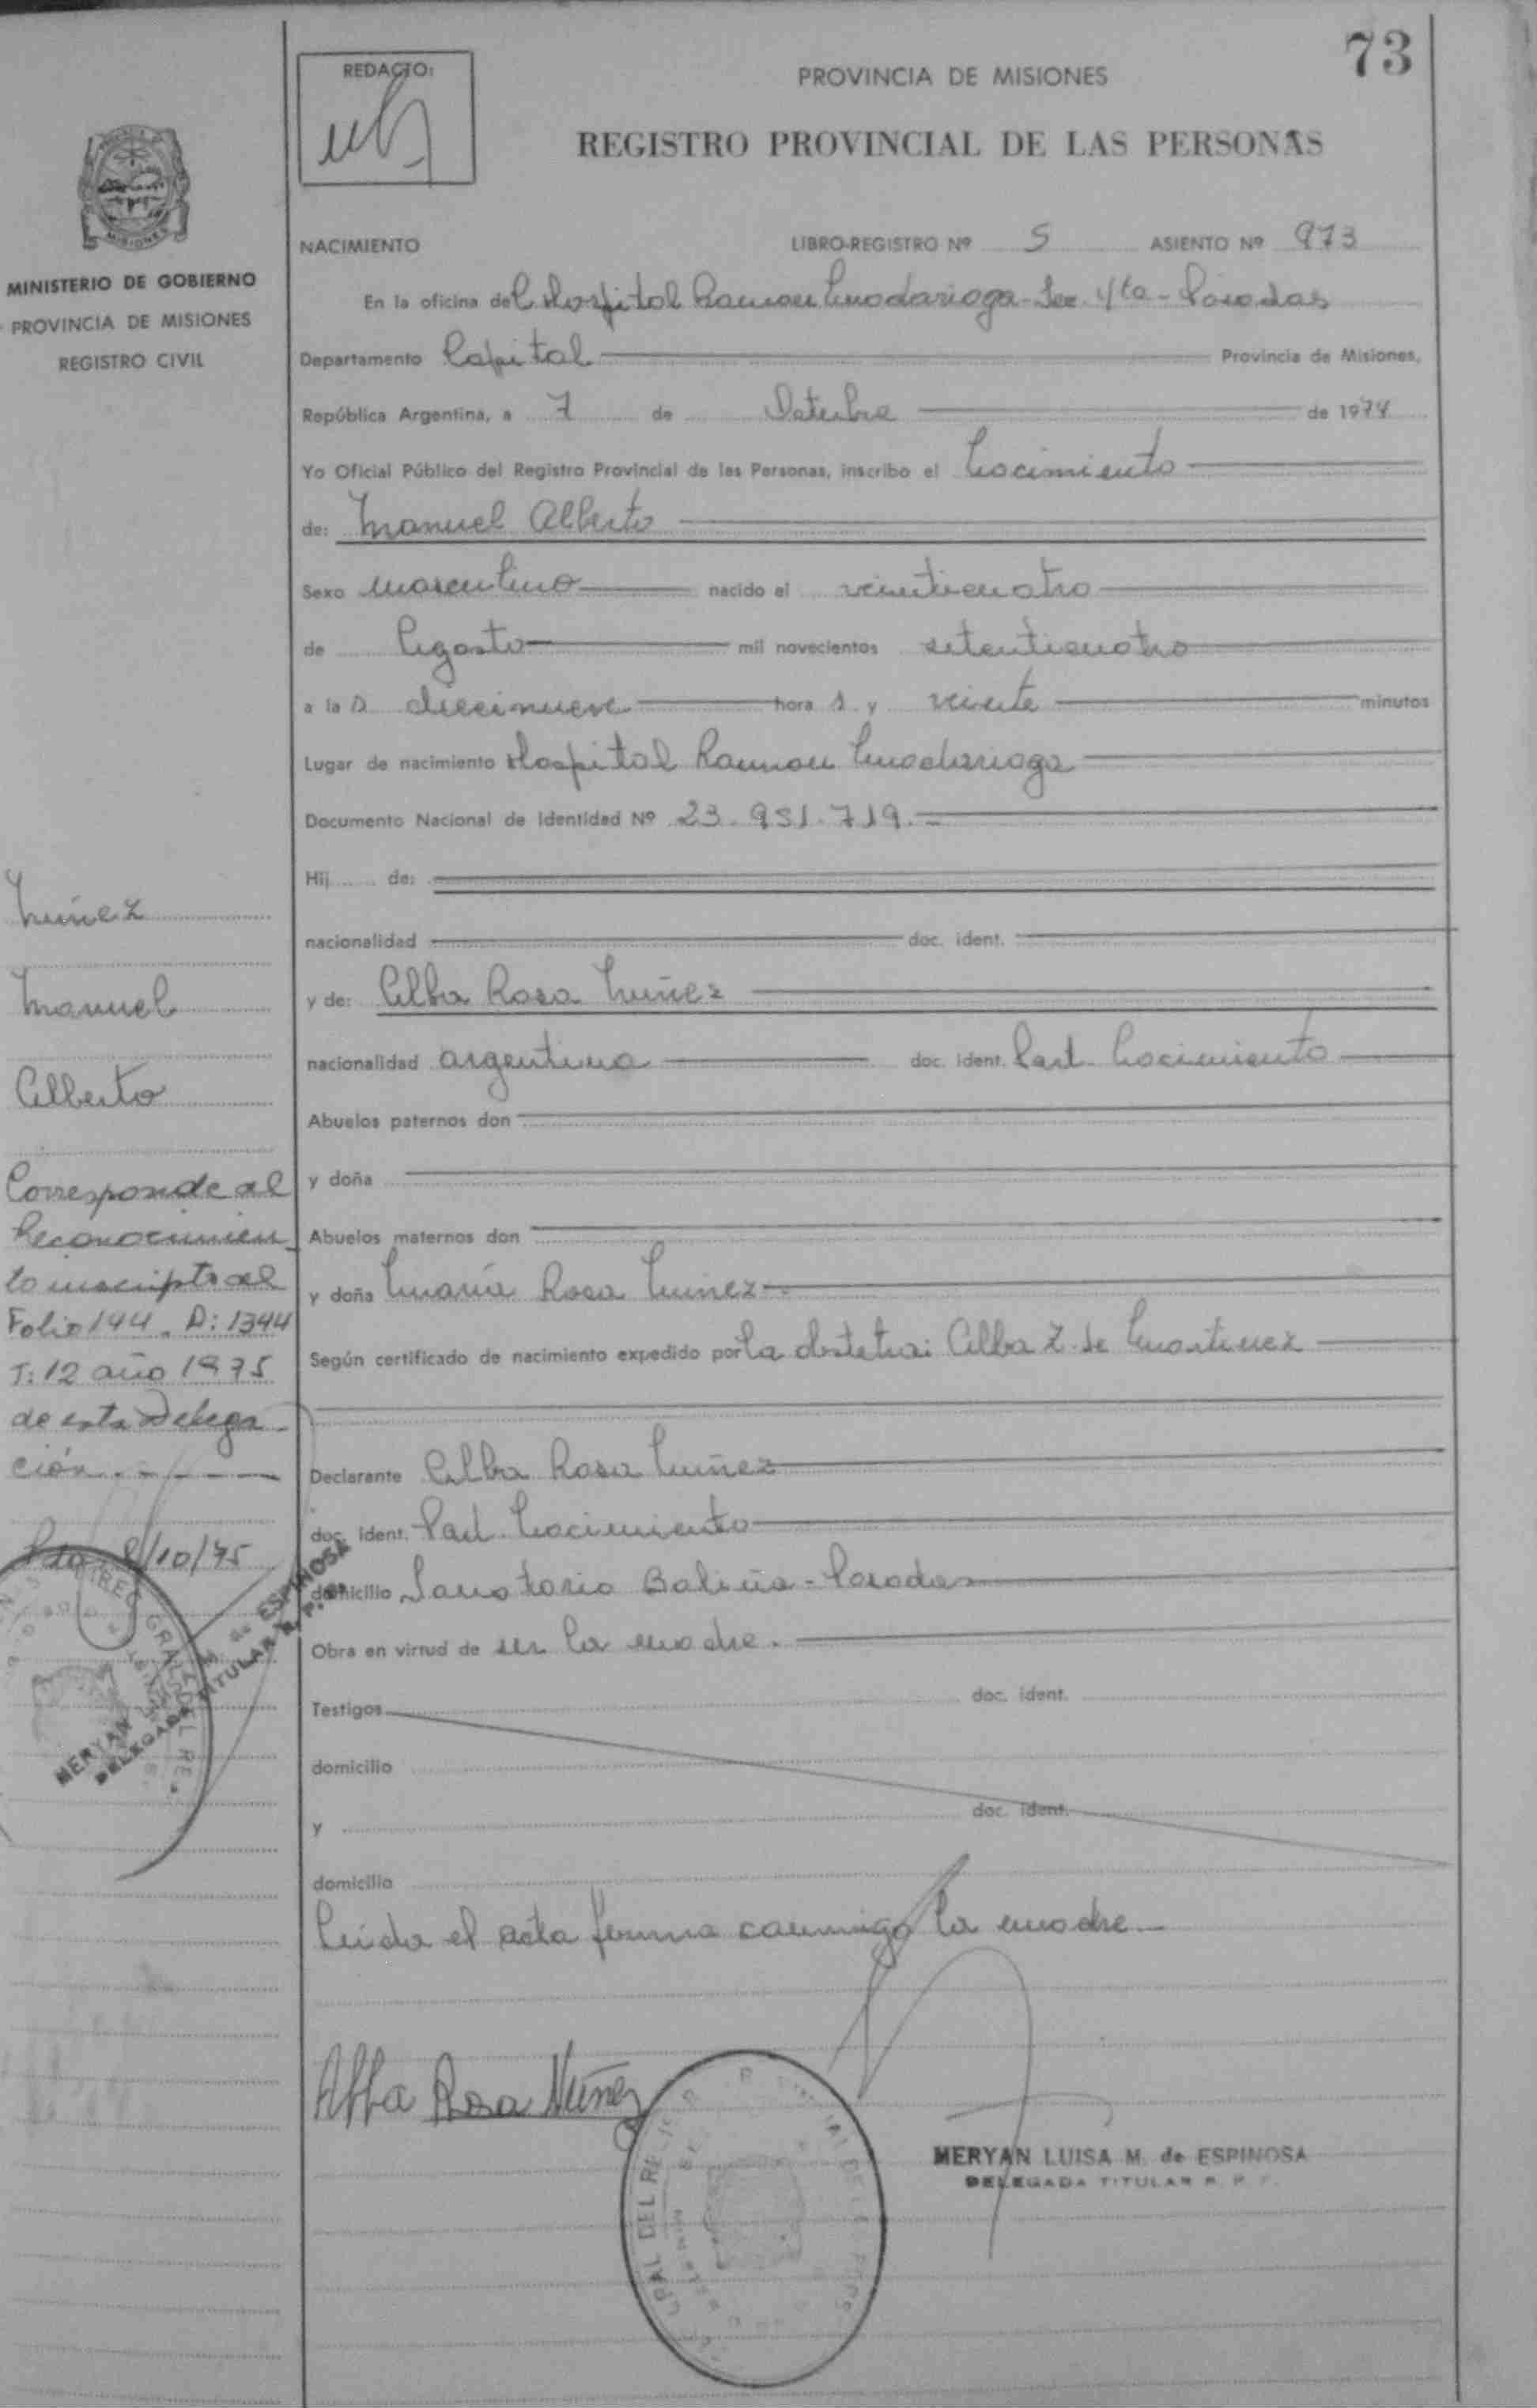 73
REDACTO:
PROVINCIA DE MISIONES
REGISTRO PROVINCIAL DE LAS PERSONAS
MISIONES
MINISTERIO DE GOBIERNO
PROVINCIA DE MISIONES
REGISTRO CIVIL
NACIMIENTO LIBRO-REGISTRO Nº 5 ASIENTO Nº 973
En la oficina del Hospital Ramon Madariaga - Sec 4ta - Posadas
Departamento Capital Provincia de Misiones,
República Argentina, a 7 de Octubre de 1974
Yo Oficial Público del Registro Provincial de las Personas, inscribo el Nacimiento
de: Manuel Alberto
Sexo masculino nacido el veinticuatro
de Agosto mil novecientos setenticuatro
a las diecinueve horas y veinte minutos
Lugar de nacimiento Hospital Ramon Madariaga
Documento Nacional de Identidad Nº 23.951.719.-
Hij de:
nacionalidad doc. ident.
y de: Alba Rosa Nuñez
nacionalidad argentina doc. ident. Part. Nacimiento
Abuelos paternos don
y doña
Abuelos maternos don
y doña María Rosa Nuñez
Según certificado de nacimiento expedido por la obstetra: Alba Z. de Martinez
Declarante Alba Rosa Nuñez
doc. ident. Part. Nacimiento
domicilio Sanatorio Baliña - Posadas
Obra en virtud de ser la madre.
Testigos doc. ident.
domicilio
y doc. ident.
domicilio
Leida el acta firma conmigo la madre
Alba Rosa Nuñez
MERYAN LUISA M. de ESPINOSA
DELEGADA TITULAR R. P. P.
Nuñez
Manuel
Alberto
Corresponde al
Reconocimien
to inscripto al
Folio 144. A: 1344
T: 12 año 1975
de esta Delega
ción.
Pdas 8/10/75
MERYAN LUISA M. de ESPINOSA
DELEGADA TITULAR R. P. P.